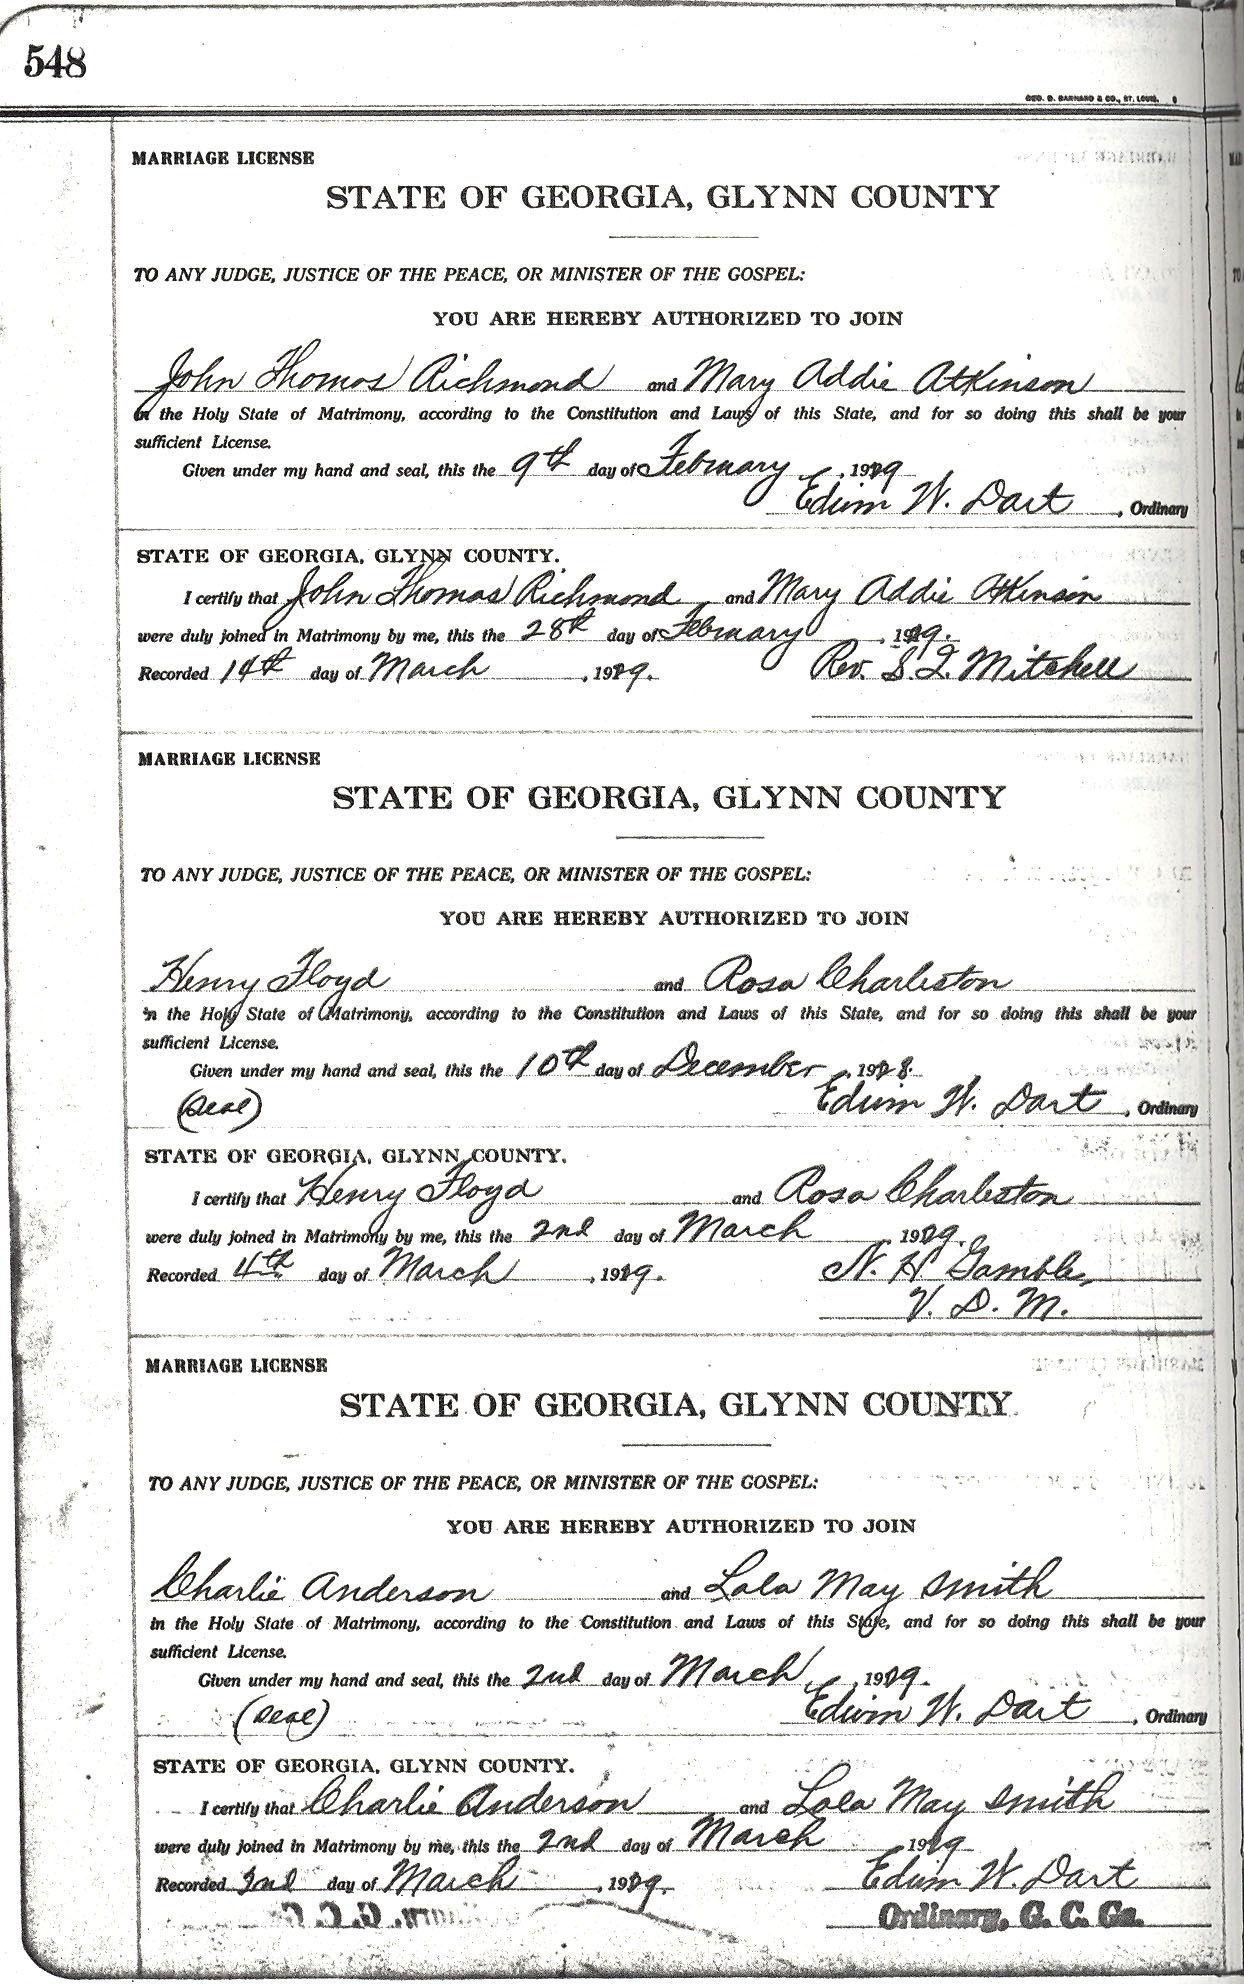 548
GEO. D. BARNARD & CO., ST. LOUIS. 6
MARRIAGE LICENSE
STATE OF GEORGIA, GLYNN COUNTY
TO ANY JUDGE, JUSTICE OF THE PEACE, OR MINISTER OF THE GOSPEL:
YOU ARE HEREBY AUTHORIZED TO JOIN
John Thomas Richmond and Mary Addie Atkinson
in the Holy State of Matrimony, according to the Constitution and Laws of this State, and for so doing this shall be your
sufficient License.
Given under my hand and seal, this the 9th day of February, 1929
Edwin W. Dart, Ordinary
STATE OF GEORGIA, GLYNN COUNTY.
I certify that John Thomas Richmond and Mary Addie Atkinson
were duly joined in Matrimony by me, this the 28th day of February, 1929.
Recorded 14th day of March, 1929. Rev. S. Q. Mitchell
MARRIAGE LICENSE
STATE OF GEORGIA, GLYNN COUNTY
TO ANY JUDGE, JUSTICE OF THE PEACE, OR MINISTER OF THE GOSPEL:
YOU ARE HEREBY AUTHORIZED TO JOIN
Henry Floyd and Rosa Charleston
in the Holy State of Matrimony, according to the Constitution and Laws of this State, and for so doing this shall be your
sufficient License.
Given under my hand and seal, this the 10th day of December, 1928.
(Seal) Edwin W. Dart, Ordinary
STATE OF GEORGIA, GLYNN COUNTY.
I certify that Henry Floyd and Rosa Charleston
were duly joined in Matrimony by me, this the 2nd day of March, 1929.
Recorded 4th day of March, 1929. N. H. Gamble,
V. D. M.
MARRIAGE LICENSE
STATE OF GEORGIA, GLYNN COUNTY
TO ANY JUDGE, JUSTICE OF THE PEACE, OR MINISTER OF THE GOSPEL:
YOU ARE HEREBY AUTHORIZED TO JOIN
Charlie Anderson and Lola May Smith
in the Holy State of Matrimony, according to the Constitution and Laws of this State, and for so doing this shall be your
sufficient License.
Given under my hand and seal, this the 2nd day of March, 1929.
(Seal) Edwin W. Dart, Ordinary
STATE OF GEORGIA, GLYNN COUNTY.
I certify that Charlie Anderson and Lola May Smith
were duly joined in Matrimony by me, this the 2nd day of March, 1929
Recorded 2nd day of March, 1929. Edwin W. Dart
Ordinary, G. C. Ga.